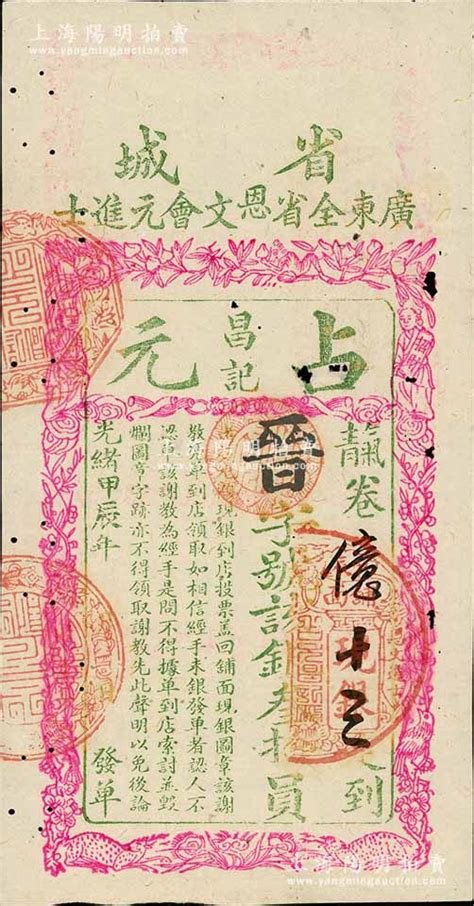 上海陽明拍賣
www.yangmingauction.com
省城
廣東全省恩文會元進士
占元
昌記
卷億十三到
晉字號該銀叁拾員
現銀到店投票蓋回舖面現銀圖章該謝
教單到店領取如相信經手未銀發單者認人不
認單該謝教為經手是問不得據單到店索討並毀
爛圖章字跡亦不得領取謝教先此聲明以免後論
光緒甲辰年 發單
現銀
上海陽明拍賣
www.yangmingauction.com